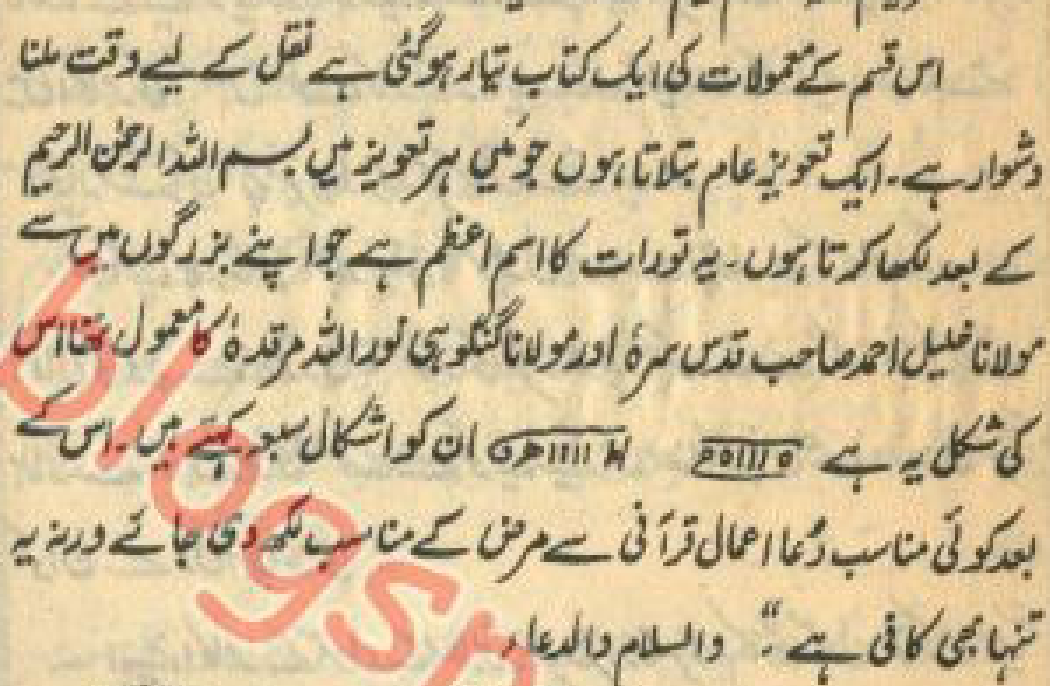 اس قسم کے معمولات کی ایک کتاب تیار ہوگئی ہے نقل کے لیے وقت ملنا
دشوار ہے۔ ایک تعویز عام بتلاتا ہوں جو میں ہر تعویز میں بسم اللہ الرحمٰن الرحیم
کے بعد لکھا کرتا ہوں۔ یہ تورات کا اسم اعظم ہے جو اپنے بزرگوں میں سے
مولانا خلیل احمد صاحب قدس سرہٗ اور مولانا گنگوہی نور اللہ مرقدہٗ کا معمول تھا اس
کی شکل یہ ہے ان کو اشکال سبعہ کہتے ہیں۔ اس کے
بعد کوئی مناسب دُعا اعمال قرآنی سے مرض کے مناسب لکھ دی جائے ورنہ یہ
تنہا بھی کافی ہے۔" والسلام والدعاء
blogsp